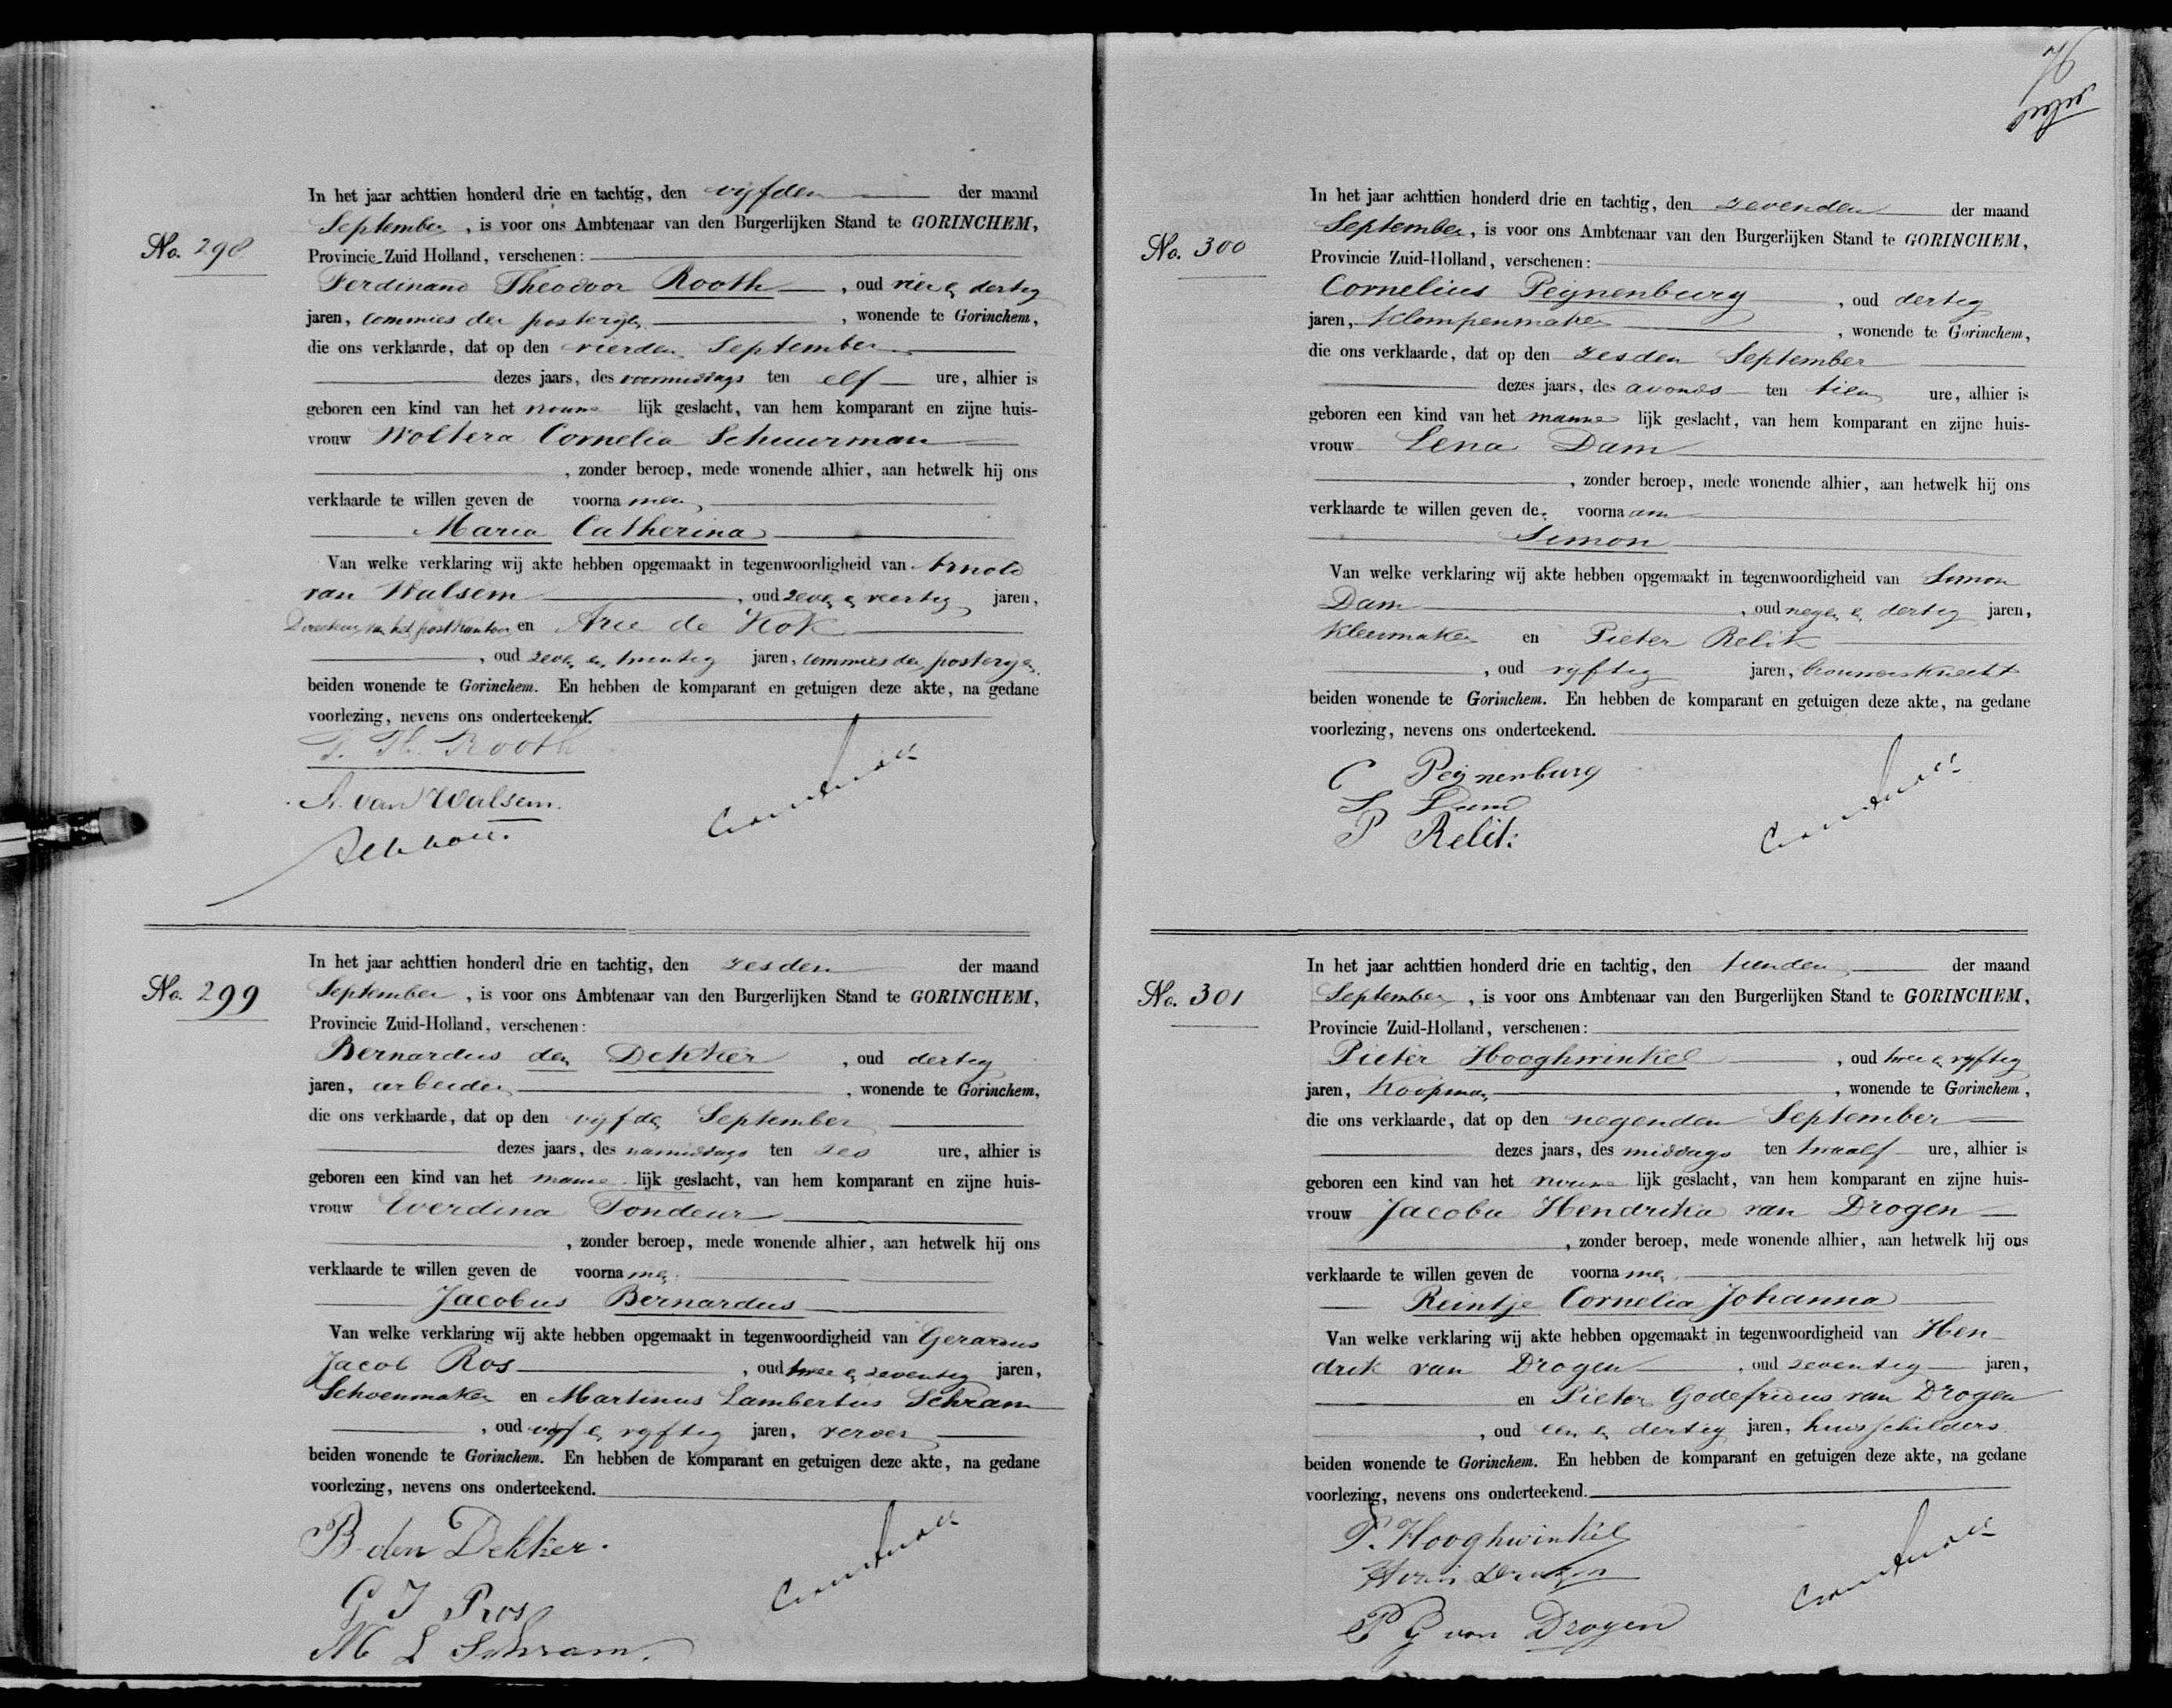 No. 298
In het jaar achttien honderd drie en tachtig, den vijfden der maand
September, is voor ons Ambtenaar van den Burgerlijken Stand te GORINCHEM,
Provincie Zuid Holland, verschenen:
Ferdinand Theodoor Rooth, oud vier en dertig
jaren, commies der posterijen, wonende te Gorinchem,
die ons verklaarde, dat op den vierden September
dezes jaars, des voormiddags ten elf ure, alhier is
geboren een kind van het vrouwe lijk geslacht, van hem komparant en zijne huis-
vrouw Woltera Cornelia Schuurman
, zonder beroep, mede wonende alhier, aan hetwelk hij ons
verklaarde te willen geven de voornamen,
Maria Catherina
Van welke verklaring wij akte hebben opgemaakt in tegenwoordigheid van Arnold
van Walsem, oud zeven en veertig jaren,
Directeur van het postkantoor en Arie de Kok
, oud zeven en twintig jaren, commies der posterijen
beiden wonende te Gorinchem. En hebben de komparant en getuigen deze akte, na gedane
voorlezing, nevens ons onderteekend.
F. Th. Rooth
A. van Walsem.
No. 299
In het jaar achttien honderd drie en tachtig, den zesden der maand
September, is voor ons Ambtenaar van den Burgerlijken Stand te GORINCHEM,
Provincie Zuid-Holland, verschenen:
Bernardus den Dekker, oud dertig
jaren, arbeider, wonende te Gorinchem,
die ons verklaarde, dat op den vijfden September
dezes jaars, des namiddags ten zes ure, alhier is
geboren een kind van het manne lijk geslacht, van hem komparant en zijne huis-
vrouw Everdina Tondeur
, zonder beroep, mede wonende alhier, aan hetwelk hij ons
verklaarde te willen geven de voornamen
Jacobus Bernardus
Van welke verklaring wij akte hebben opgemaakt in tegenwoordigheid van Gerardus
Jacob Ros, oud twee en zeventig jaren,
Schoenmaker en Martinus Lambertus Schram
, oud vijf en vijftig jaren, verver
beiden wonende te Gorinchem. En hebben de komparant en getuigen deze akte, na gedane
voorlezing, nevens ons onderteekend.
B den Dekker.
G J Ros
M L Schram.
76
No. 300
In het jaar achttien honderd drie en tachtig, den zevenden der maand
September, is voor ons Ambtenaar van den Burgerlijken Stand te GORINCHEM,
Provincie Zuid-Holland, verschenen:
Cornelius Peijnenburg, oud dertig
jaren, Klompenmaker, wonende te Gorinchem,
die ons verklaarde, dat op den zesden September
dezes jaars, des avonds ten tien ure, alhier is
geboren een kind van het manne lijk geslacht, van hem komparant en zijne huis-
vrouw Lena Dam
, zonder beroep, mede wonende alhier, aan hetwelk hij ons
verklaarde te willen geven den voornaam
Simon
Van welke verklaring wij akte hebben opgemaakt in tegenwoordigheid van Simon
Dam, oud negen en dertig jaren,
Kleermaker en Pieter Relik
, oud vijftig jaren, brouwersknecht
beiden wonende te Gorinchem. En hebben de komparant en getuigen deze akte, na gedane
voorlezing, nevens ons onderteekend.
C Peijnenburg
S Dam
P Relik
No. 301
In het jaar achttien honderd drie en tachtig, den tienden der maand
September, is voor ons Ambtenaar van den Burgerlijken Stand te GORINCHEM,
Provincie Zuid-Holland, verschenen:
Pieter Hooghwinkel, oud twee en vijftig
jaren, Koopman, wonende te Gorinchem,
die ons verklaarde, dat op den negenden September
dezes jaars, des middags ten twaalf ure, alhier is
geboren een kind van het vrouwe lijk geslacht, van hem komparant en zijne huis-
vrouw Jacoba Hendrika van Drogen
, zonder beroep, mede wonende alhier, aan hetwelk hij ons
verklaarde te willen geven de voornamen
Reintje Cornelia Johanna
Van welke verklaring wij akte hebben opgemaakt in tegenwoordigheid van Hen-
drik van Drogen, oud zeventig jaren,
en Pieter Godefridus van Drogen
, oud een en dertig jaren, huisschilders
beiden wonende te Gorinchem. En hebben de komparant en getuigen deze akte, na gedane
voorlezing, nevens ons onderteekend.
P. Hooghwinkel
P G van Drogen